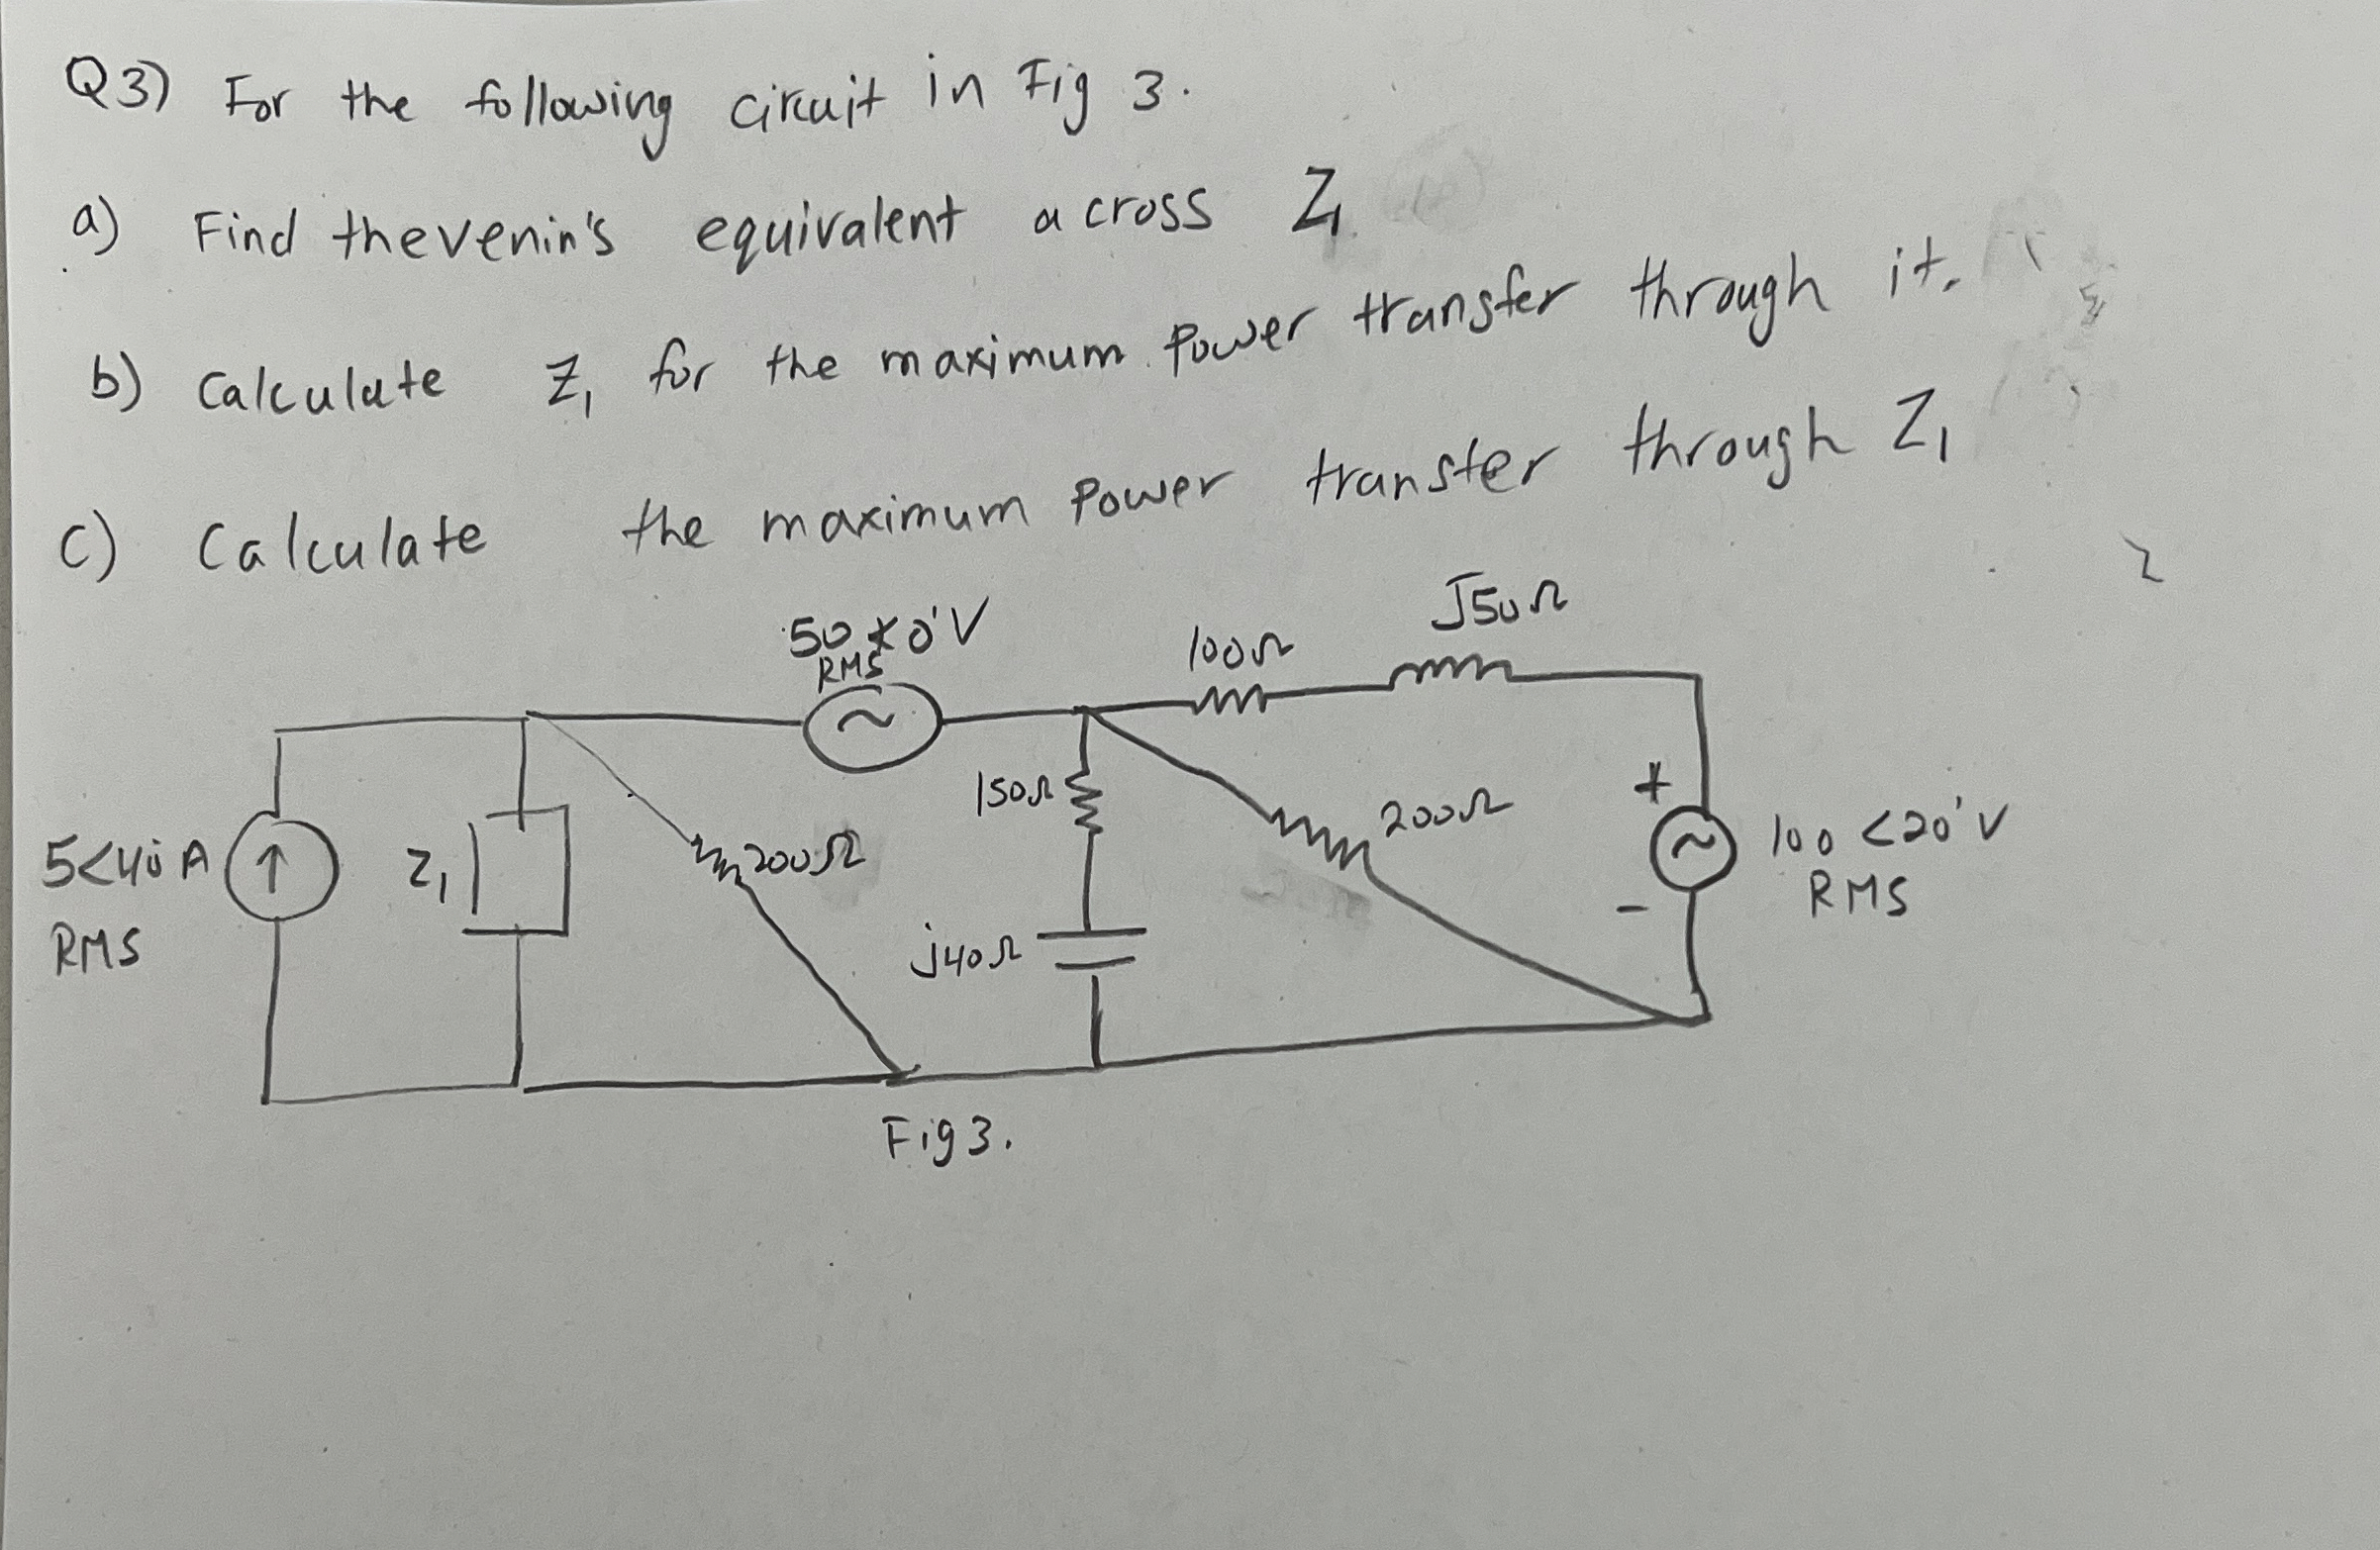 Q3) For the following circuit in Fig 3.
a) Find thevenin's equivalent across Z1
b) Calculate Z1 for the maximum power transfer through it.
c) Calculate the maximum power transfer through Z1
J50Ω
50∠0°V
RMS
100Ω
150Ω
200Ω
+
5<40°A
RMS
Z1
200Ω
100<20°V
RMS
-
j40Ω
Fig3.